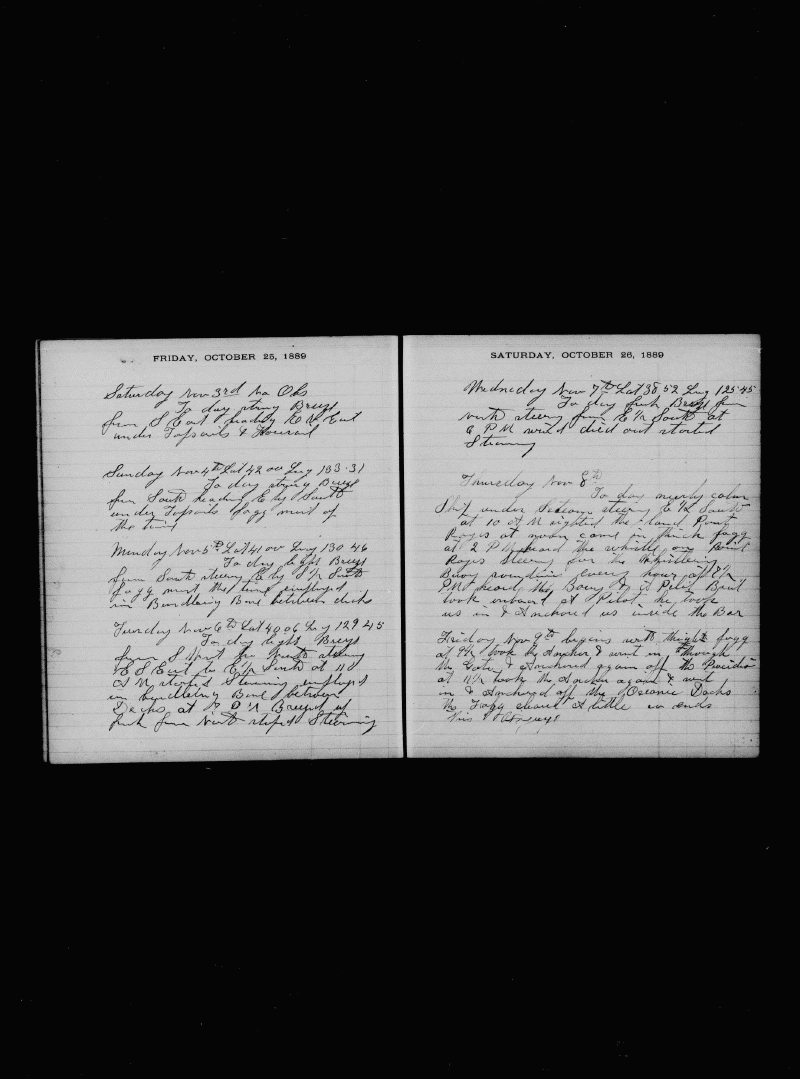 FRIDAY, OCTOBER 25, 1889
Saturday Nov 3rd no Obs
To day strong Breeze
from S East heading E by East
under Topsails &
Sunday Nov 4th Lat 42 00 Lng 133.31
To day strong Breeze
from South heading E by South
under Topsails fogg most of
the time
Monday Nov 5th Lat 41 00 Lng 130 46
To day light Breeze
from South steering E by S 1/2 South
fogg most the time employed
in Bundleing Bone between decks
Tuesday Nov 6th Lat 40 06 Lng 129 45
To day light Breeze
from S West to North steering
E S East to E 1/2 South at 11
A M started Steaming employed
in bundleing Bone between
Decks at P M Breezed up
fresh from North stoped Steaming
SATURDAY, OCTOBER 26, 1889
Wednesday Nov 7th Lat 38 52 Lng 125 45
To day fresh Breeze from
north steering from E 1/2 South at
6 P M wind died out started
Steaming
Thursday Nov 8th
To day nearly calm
Ship under Steam steering E 1/2 South
at 10 A M sighted the land Point
Reyes at noon came in thick fogg
at 2 P M heard the whistle on Point
Reyes Steering for the Whistleing
Buoy sounding every hour at 8 1/2
P M heard the Bouy & A Pilot Boat
took onboard A Pilot he took
us in & Anchored us inside the Bar
Friday Nov 9th begins with thick fogg
at 9 1/2 took the Anchor & went in through
the Gate & Anchored again off the Presidio
at 11 1/2 took the Anchor again & went
in & Anchored off the Oceanic Docks
the Fogg cleard A little so ends
this Voyage